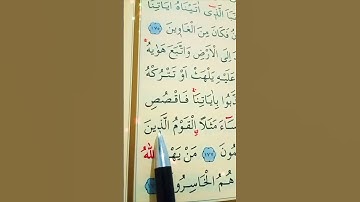 الَّذِى اٰتَيْنَاهُ اٰيَاتِنَا
فَكَانَ مِنَ الْغَاوِينَ ﴿١٧٥﴾
اِلَى الْاَرْضِ وَاتَّبَعَ هَوٰيهُ
عَلَيْهِ يَلْهَثْ اَوْ تَتْرُكْهُ
بِاٰيَاتِنَا فَاقْصُصِ
سَاۤءَ مَثَلًاۨ الْقَوْمُ الَّذِينَ
﴿١٧٧﴾ مَنْ يَهْ اللّٰهُ
هُمُ الْخَاسِرُو ﴿١٧٨﴾